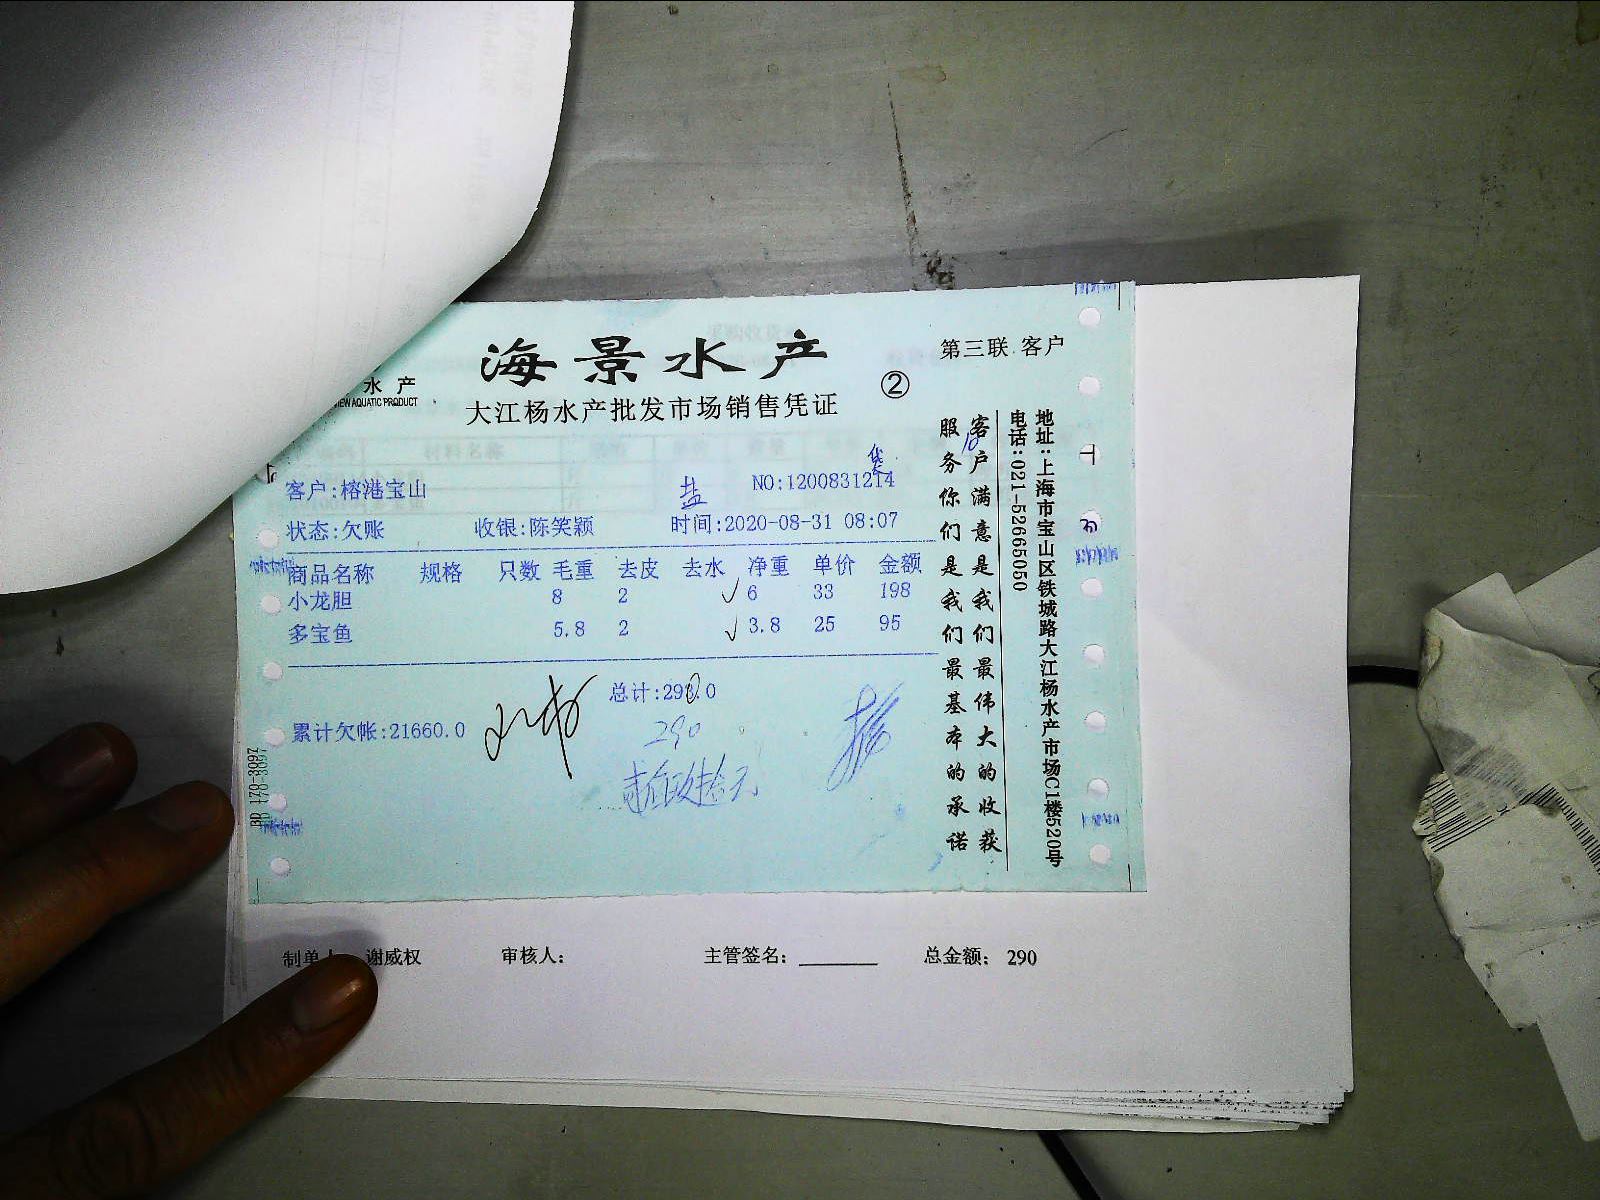 海景水产
第三联 客户
水产
VIEW AQUATIC PRODUCT
大江杨水产批发市场销售凭证
②
客户:榕港宝山
盐
NO:1200831214
状态:欠账 收银:陈笑颖 时间:2020-08-31 08:07
商品名称 规格 只数 毛重 去皮 去水 净重 单价 金额
小龙胆 8 2 6 33 198
多宝鱼 5.8 2 3.8 25 95
总计:290.0
累计欠帐:21660.0
290
客户满意是我们最伟大的收获
服务你们是我们最基本的承诺
地址:上海市宝山区铁城路大江杨水产市场C1楼520号
电话:021-52665050
BD 178-3097
制单人 谢威权 审核人: 主管签名: 总金额: 290